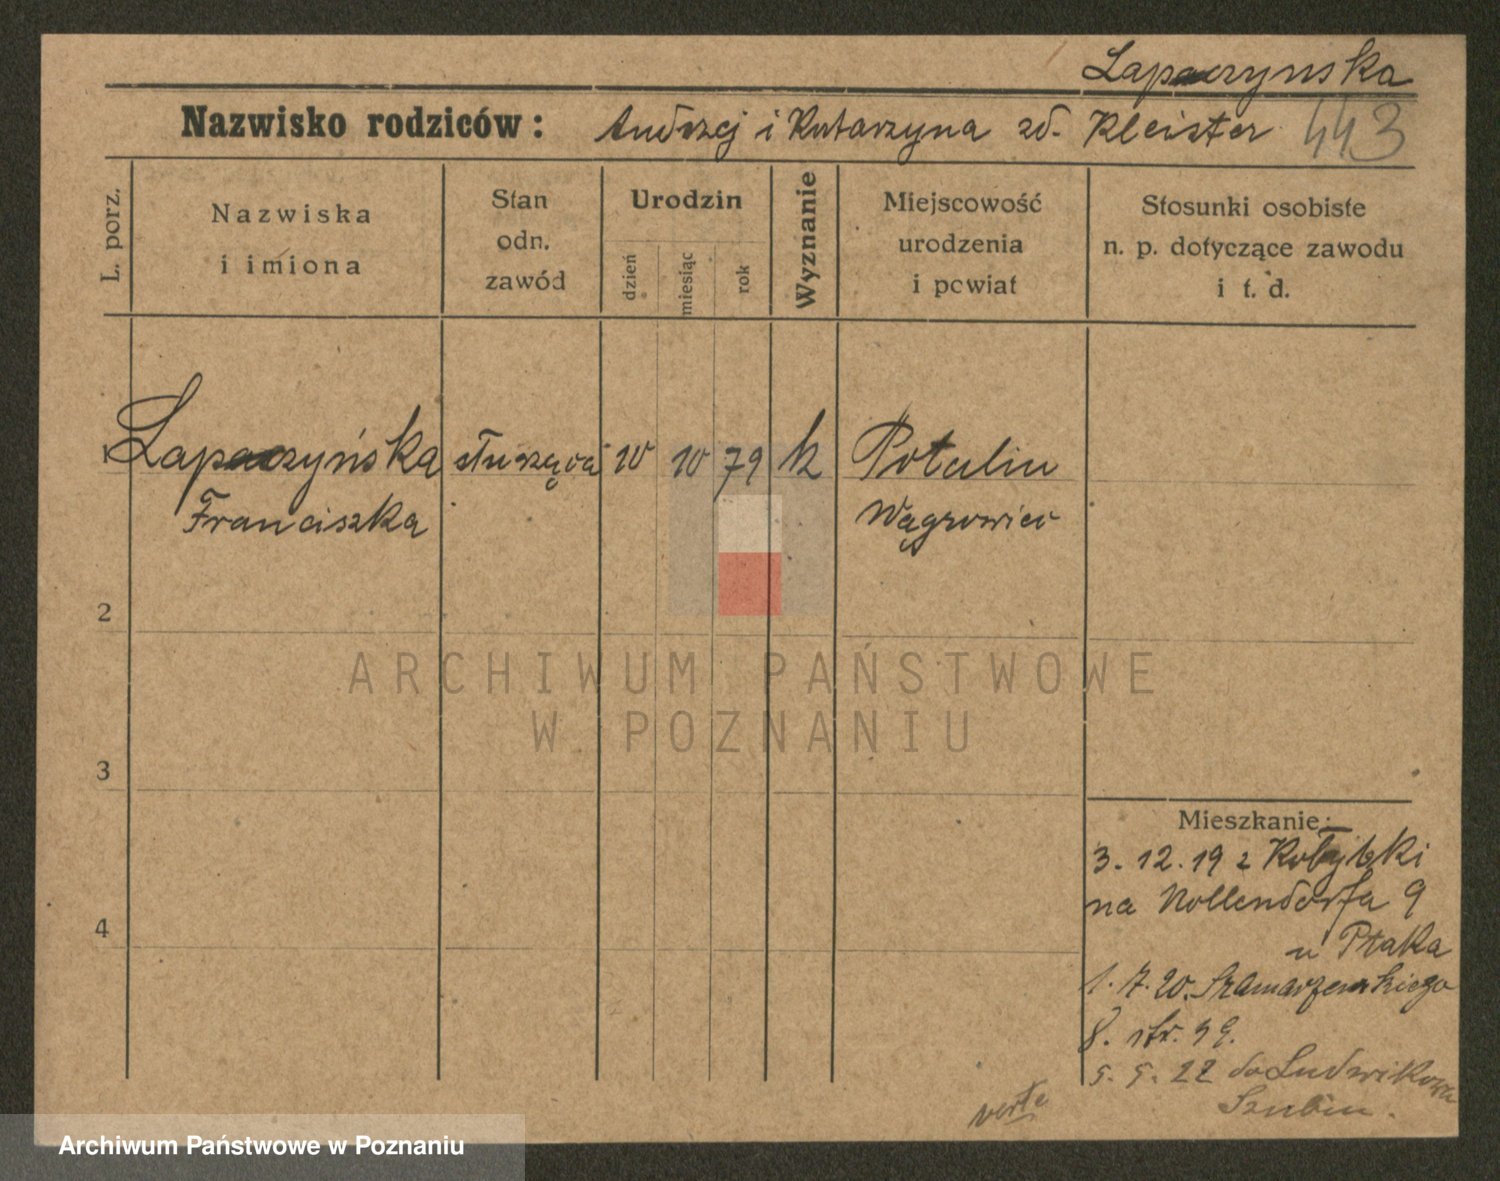 Łapaczynska
Nazwisko rodziców: Andrzej i Katarzyna zd. Kleister 443
L. porz.
Nazwiska
i imiona
Stan
odn.
zawód
Urodzin
dzień
miesiąc
rok
Wyznanie
Miejscowość
urodzenia
i powiat
Stosunki osobiste
n. p. dotyczące zawodu
i t. d.
1 Łapaczyńska służąca 10 10 79 k Potulin
Franciszka Wągrowiec
2
3
4
Mieszkanie:
3. 12. 19 z Kołybki
na Nollendorfa 9
u Ptaka
1. 7. 20. Szamarzewskiego
8. str. 99.
5. 5. 22 do Ludwikowa
Szubin.
verte
ARCHIWUM PAŃSTWOWE
W POZNANIU
Archiwum Państwowe w Poznaniu